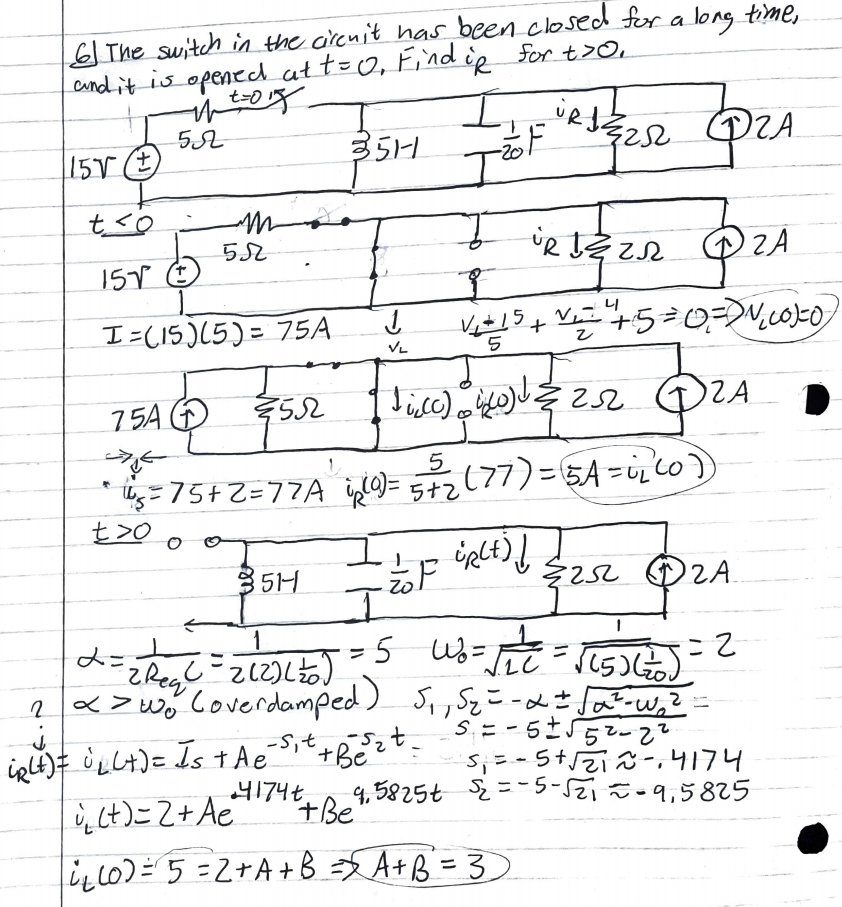 6) The switch in the circuit has been closed for a long time,
and it is opened at t=0. Find i_R for t>0.
t=0
5Ω
15V
5H
1/20 F
i_R ↓
2Ω
2A
t<0
5Ω
15V
i_R ↓
2Ω
2A
I=(15)(5)= 75A
↓
V_L
+ 5 = 0 => V_L(0)=0
75A
5Ω
↓ i_L(0)
i_R(0) ↓
2Ω
2A
i_s = 75+2=77A i_R(0)= 5/(5+2) (77) = 5A = i_L(0)
t>0
5H
1/20 F
i_R(t) ↓
2Ω
2A
α = 1/(2R_eq C) = 1/(2(2)(1/20)) = 5 ω_0 = 1/√LC = 1/√((5)(1/20)) = 2
? α > ω_0 (overdamped) S_1, S_2 = -α ± √(α²-ω_0²) =
↓ S = -5 ± √(5²-2²)
i_R(t) = i_L(t) = I_s + Ae^(-S_1t) + Be^(-S_2t) = S_1 = -5+√21 ≈ -.4174
i_L(t) = 2+Ae^(.4174t) + Be^(9.5825t) S_2 = -5-√21 ≈ -9.5825
i_L(0) = 5 = 2+A+B => A+B = 3